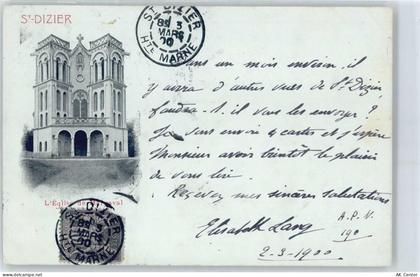 St-DIZIER
St DIZIER
8E 3
MARS
00
HTE MARNE
Dans un mois environ il
y aura d'autres vues de St Dizier,
faudra-t-il vous les envoyer?
Je vous envoi 4 cartes et j'espère
Monsieur avoir bientôt le plaisir
de vous lire.
Recevez mes sincères salutations
Elisabeth Lang
A.P.V.
190
2-3-1900
L'Eglise de
DIZIER
MARNE
AK Center